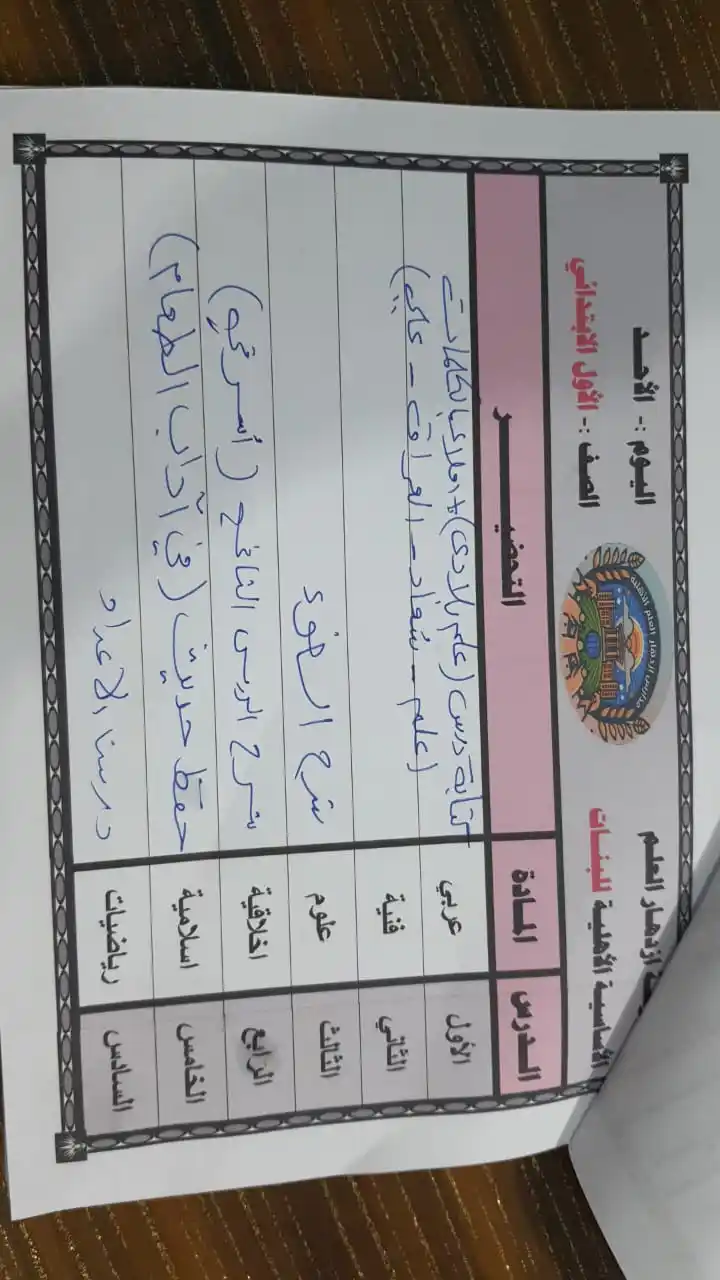 ازدهار العلم
الأساسية الأهلية للبنات
مدارس ازدهار العلم الأهلية
اليوم :- الأحد
الصف :- الأول الابتدائي
الدرس المادة التحضير
الأول عربي كتابة درس (علم بلادي) + املاء بالكلمات
(علم - شعاد - العراق - عالي)
الثاني فنية
الثالث علوم شرح السلايد
الرابع اخلاقية شرح الدرس التاسع (أسرتي)
الخامس اسلامية حفظ حديث (في آداب الطعام)
السادس رياضيات درسنا الاعداد